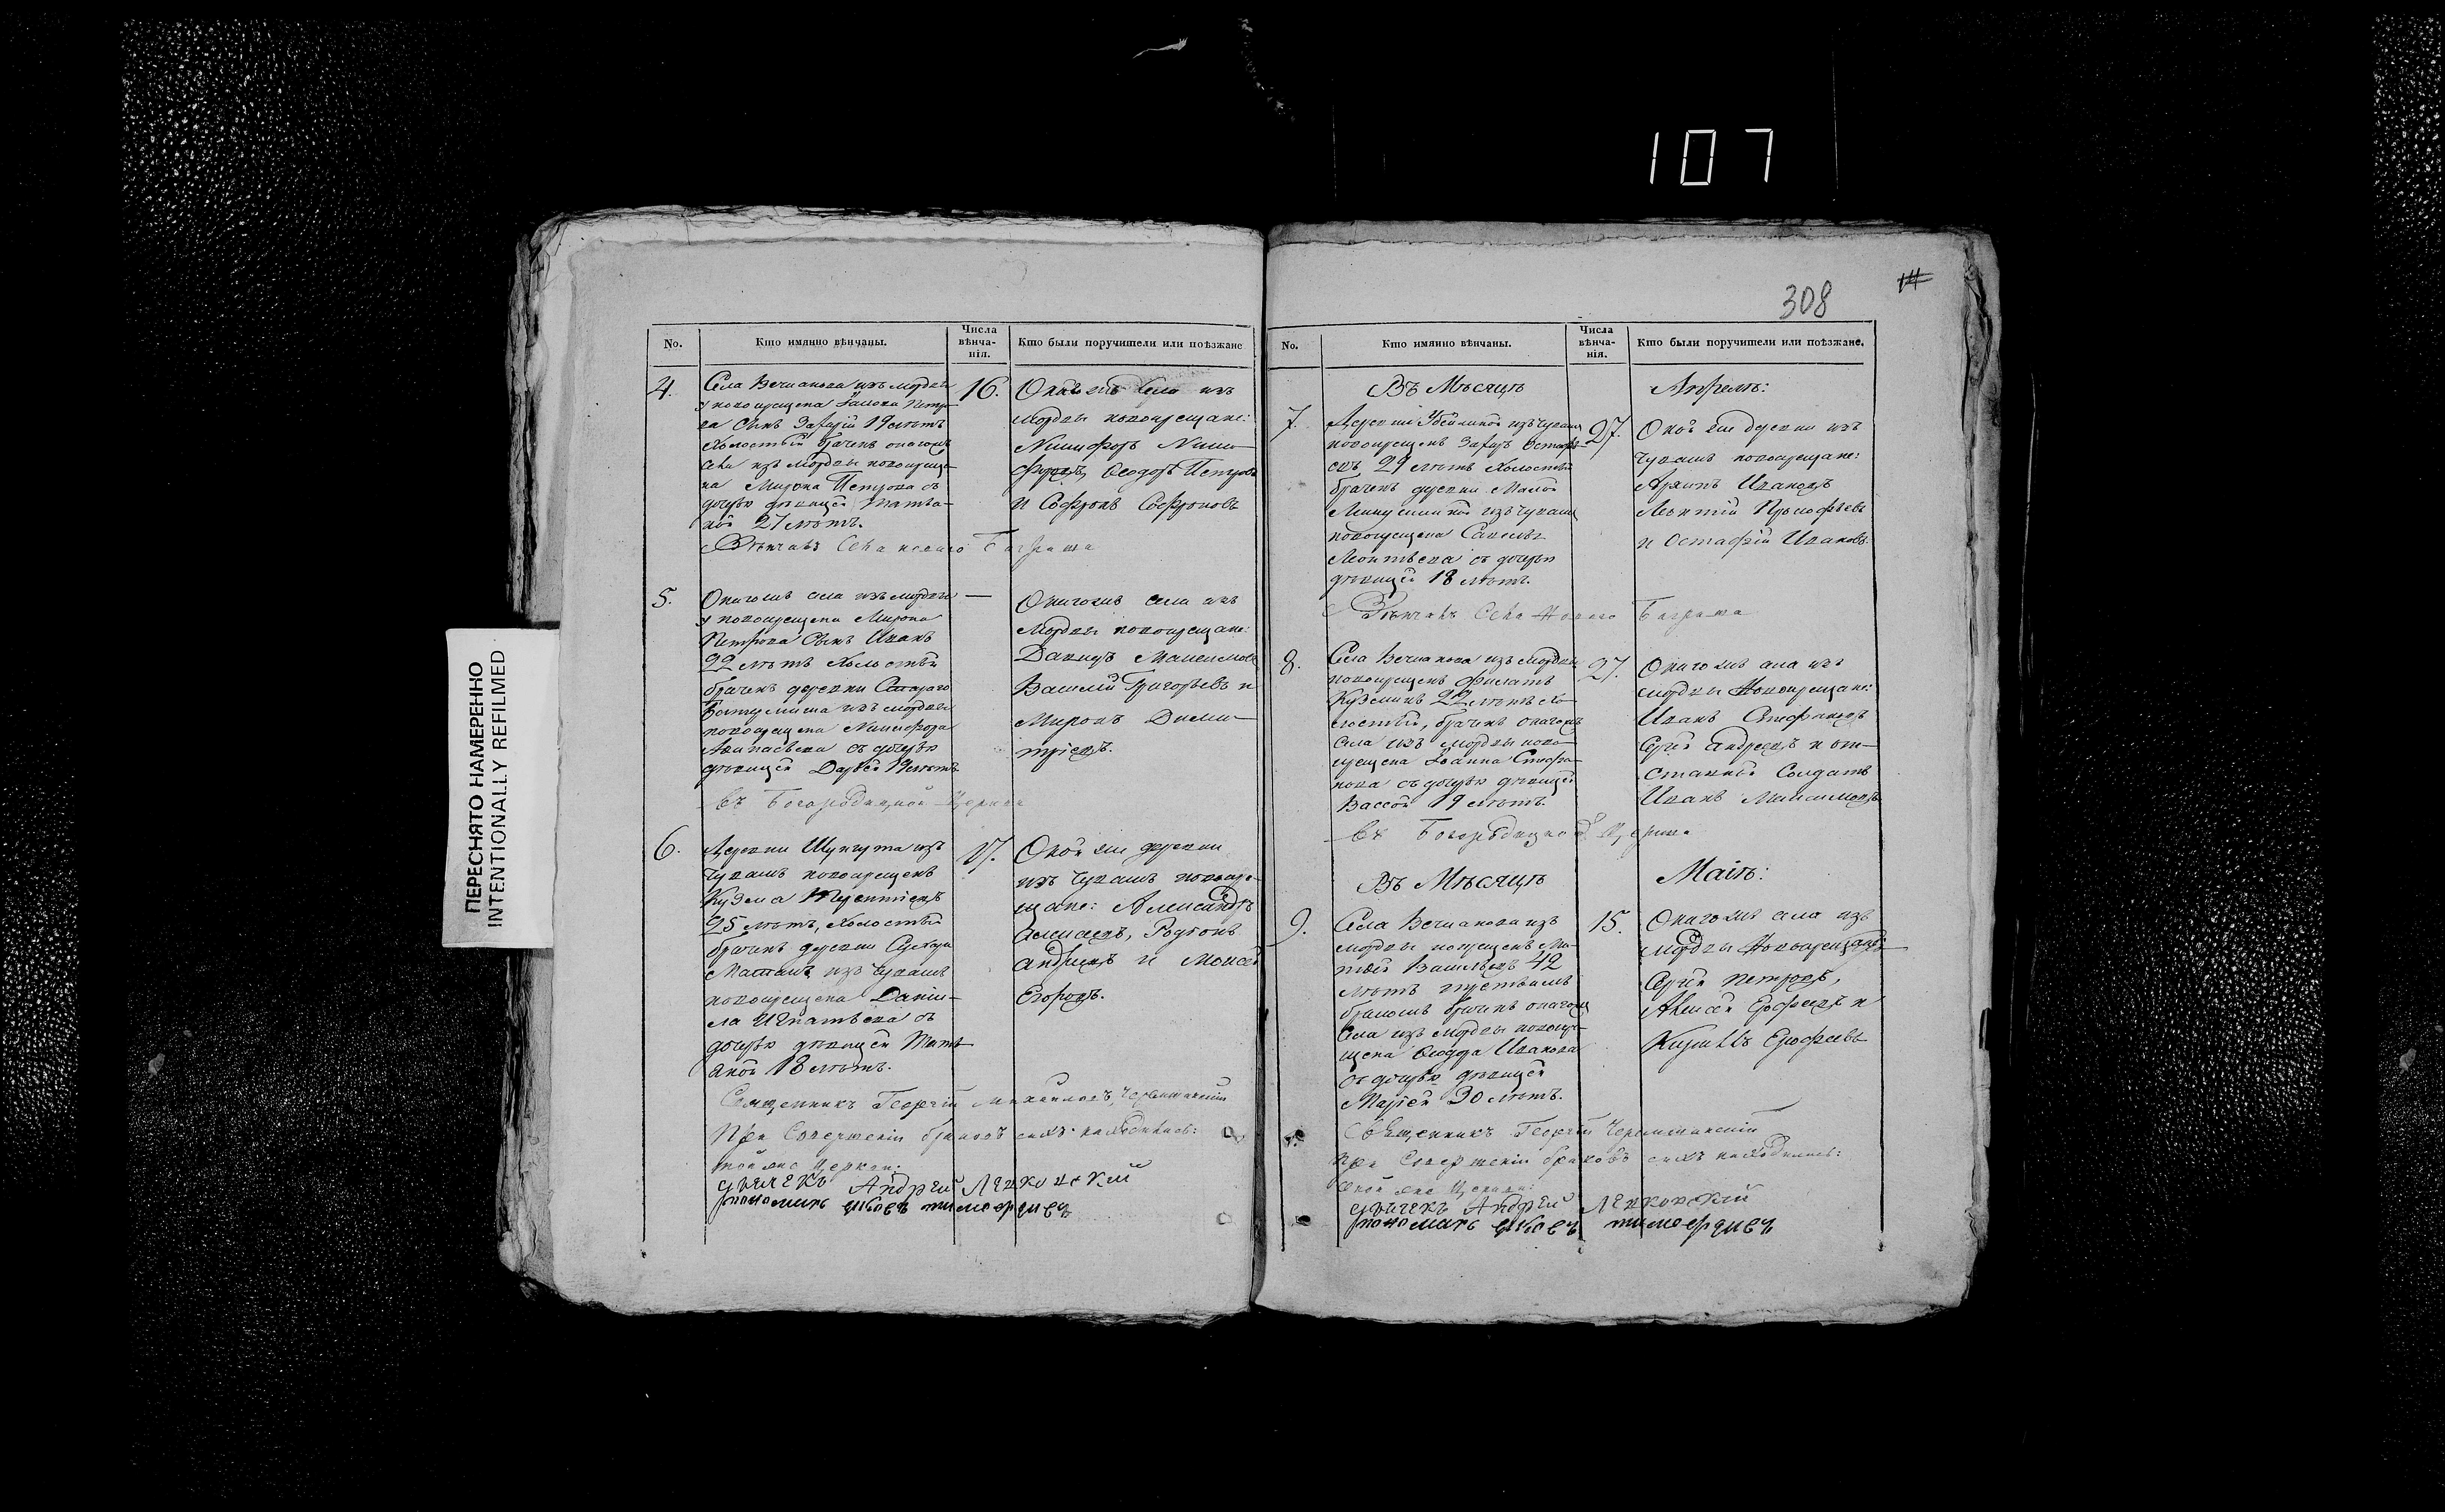 107
308
14
ПЕРЕСНЯТО НАМЕРЕННО
INTENTIONALLY REFILMED
No.
Кто имянно вѣнчаны.
Числа вѣнча-нія.
Кто были поручители или поѣзжане
4.
Села Вечканова изъ мордвы
у новокрещена Петро-
ва сынъ Захарій 19 лѣтъ
холостый браченъ онагожъ
села изъ мордвы новокреще-
на Мирона Петрова съ
дочерью дѣвицей Татья-
ной 21 лѣтъ.
Вѣнчанъ Села
16.
села изъ
мордвы новокрещане:
Никифоръ Ники-
форовъ, Ѳеодоръ Петровъ
и Софронъ Софроновъ
5.
Онагожъ села изъ мордвы
у новокрещена Мирона
Петрова сынъ Иванъ
22 лѣтъ холостый
браченъ деревни Стараго
изъ мордвы
новокрещена Никифора
Аѳанасьева съ дочерью
дѣвицей Дарьей 19 лѣтъ
въ Богородицкой Церкви
—
Онагожъ села изъ
мордвы новокрещане:
Давидъ Максимовъ
Василій Григорьевъ и
Миронъ Дими-
тріевъ.
6.
Деревни Шунгута изъ
чувашъ новокрещенъ
Кузма Терентіевъ
25 лѣтъ, холостый
браченъ деревни
изъ чувашъ
новокрещена Дани-
ла Игнатьева съ
дочерью дѣвицей Тать-
яной 18 лѣтъ.
17.
Оной же деревни
изъ чувашъ новокре-
щане: Александръ
Алексѣевъ, Родіонъ
Андреевъ и Моисей
Егоровъ.
Священникъ Георгій Михайловъ Черемшанскій
При Совершеніи браковъ сихъ находились:
той же Церкви:
дьячекъ Андрей
пономарь
No.
Кто имянно вѣнчаны.
Числа вѣнча-нія.
Кто были поручители или поѣзжане.
Въ Мѣсяцѣ Апрелѣ:
7.
Деревни изъ чувашъ
новокрещенъ Захаръ
29 лѣтъ холостый
браченъ деревни Малой
изъ чувашъ
новокрещена Савелья
Леонтьева съ дочерью
дѣвицей 18 лѣтъ.
Вѣнчанъ Села Новаго
27.
Оной же деревни изъ
чувашъ новокрещане:
Архипъ Ивановъ
Леонтій Прокофьевъ
и Остафій Ивановъ.
8.
Села Вечканова изъ мордвы
новокрещенъ Филатъ
Кузминъ 22 лѣтъ хо-
лостый, браченъ онагожъ
села изъ мордвы ново-
крещена Іоанна Стефа-
нова съ дочерью дѣвицей
Вассой 19 лѣтъ.
въ Богородицкой Церкви
27.
Онагожъ села изъ
мордвы новокрещане:
Иванъ Стефановъ
Сергѣй Андреевъ и от-
ставный Солдатъ
Иванъ Максимовъ
Въ Мѣсяцѣ Маіѣ:
9.
Села Вечканова изъ
мордвы новокрещенъ Ма-
тѳей Васильевъ 42
лѣтъ третьимъ
бракомъ браченъ онагожъ
села изъ мордвы новокре-
щена Ѳеодора Иванова
съ дочерью дѣвицей
Маріей 30 лѣтъ.
15.
Онагожъ села изъ
мордвы новокрещане:
Сергѣй Петровъ,
Алексѣй Ерофеевъ и
Кирилъ Ерофеевъ
Священникъ Георгій Черемшанскій
При Совершеніи браковъ сихъ находились:
оной же Церкви:
дьячекъ Андрей
пономарь